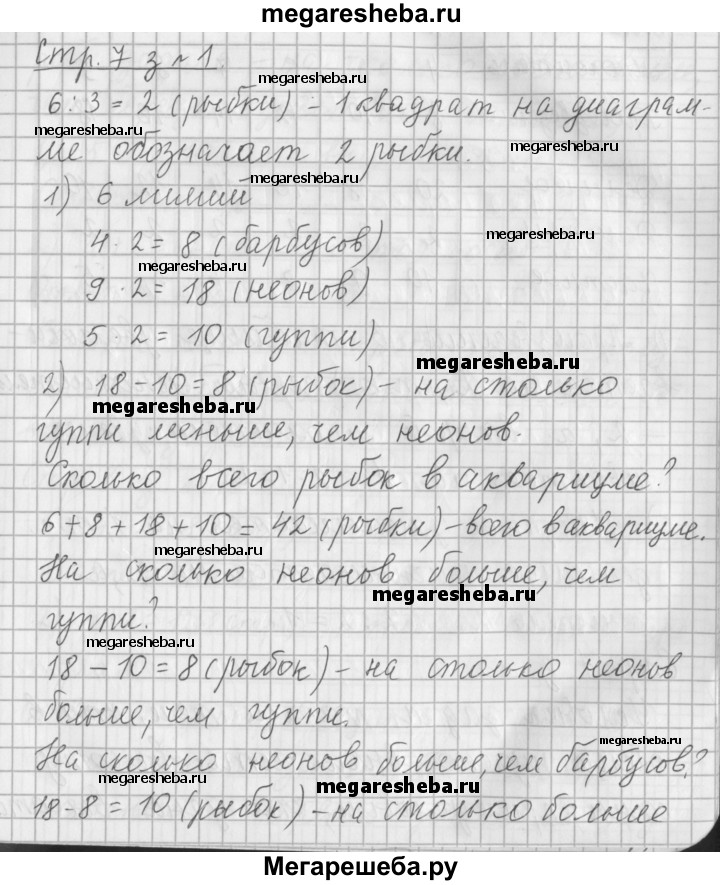 megaresheba.ru
Стр. 7 з №1.
megaresheba.ru
6:3=2 (рыбки) - 1 квадрат на диаграм-
megaresheba.ru
ме обозначает 2 рыбки.
megaresheba.ru
megaresheba.ru
1) 6 лилий
megaresheba.ru
4·2=8 (барбусов)
megaresheba.ru
9·2=18 (неонов)
5·2=10 (гуппи)
megaresheba.ru
2) 18-10=8 (рыбок) - на столько
megaresheba.ru
гуппи меньше, чем неонов.
Сколько всего рыбок в аквариуме?
6+8+18+10=42 (рыбки) - всего в аквариуме.
megaresheba.ru
На сколько неонов больше, чем
megaresheba.ru
гуппи?
megaresheba.ru
18-10=8 (рыбок) - на столько неонов
больше, чем гуппи.
megaresheba.ru
На сколько неонов больше, чем барбусов?
megaresheba.ru
megaresheba.ru
18-8=10 (рыбок) - на столько больше
Мегарешеба.ру